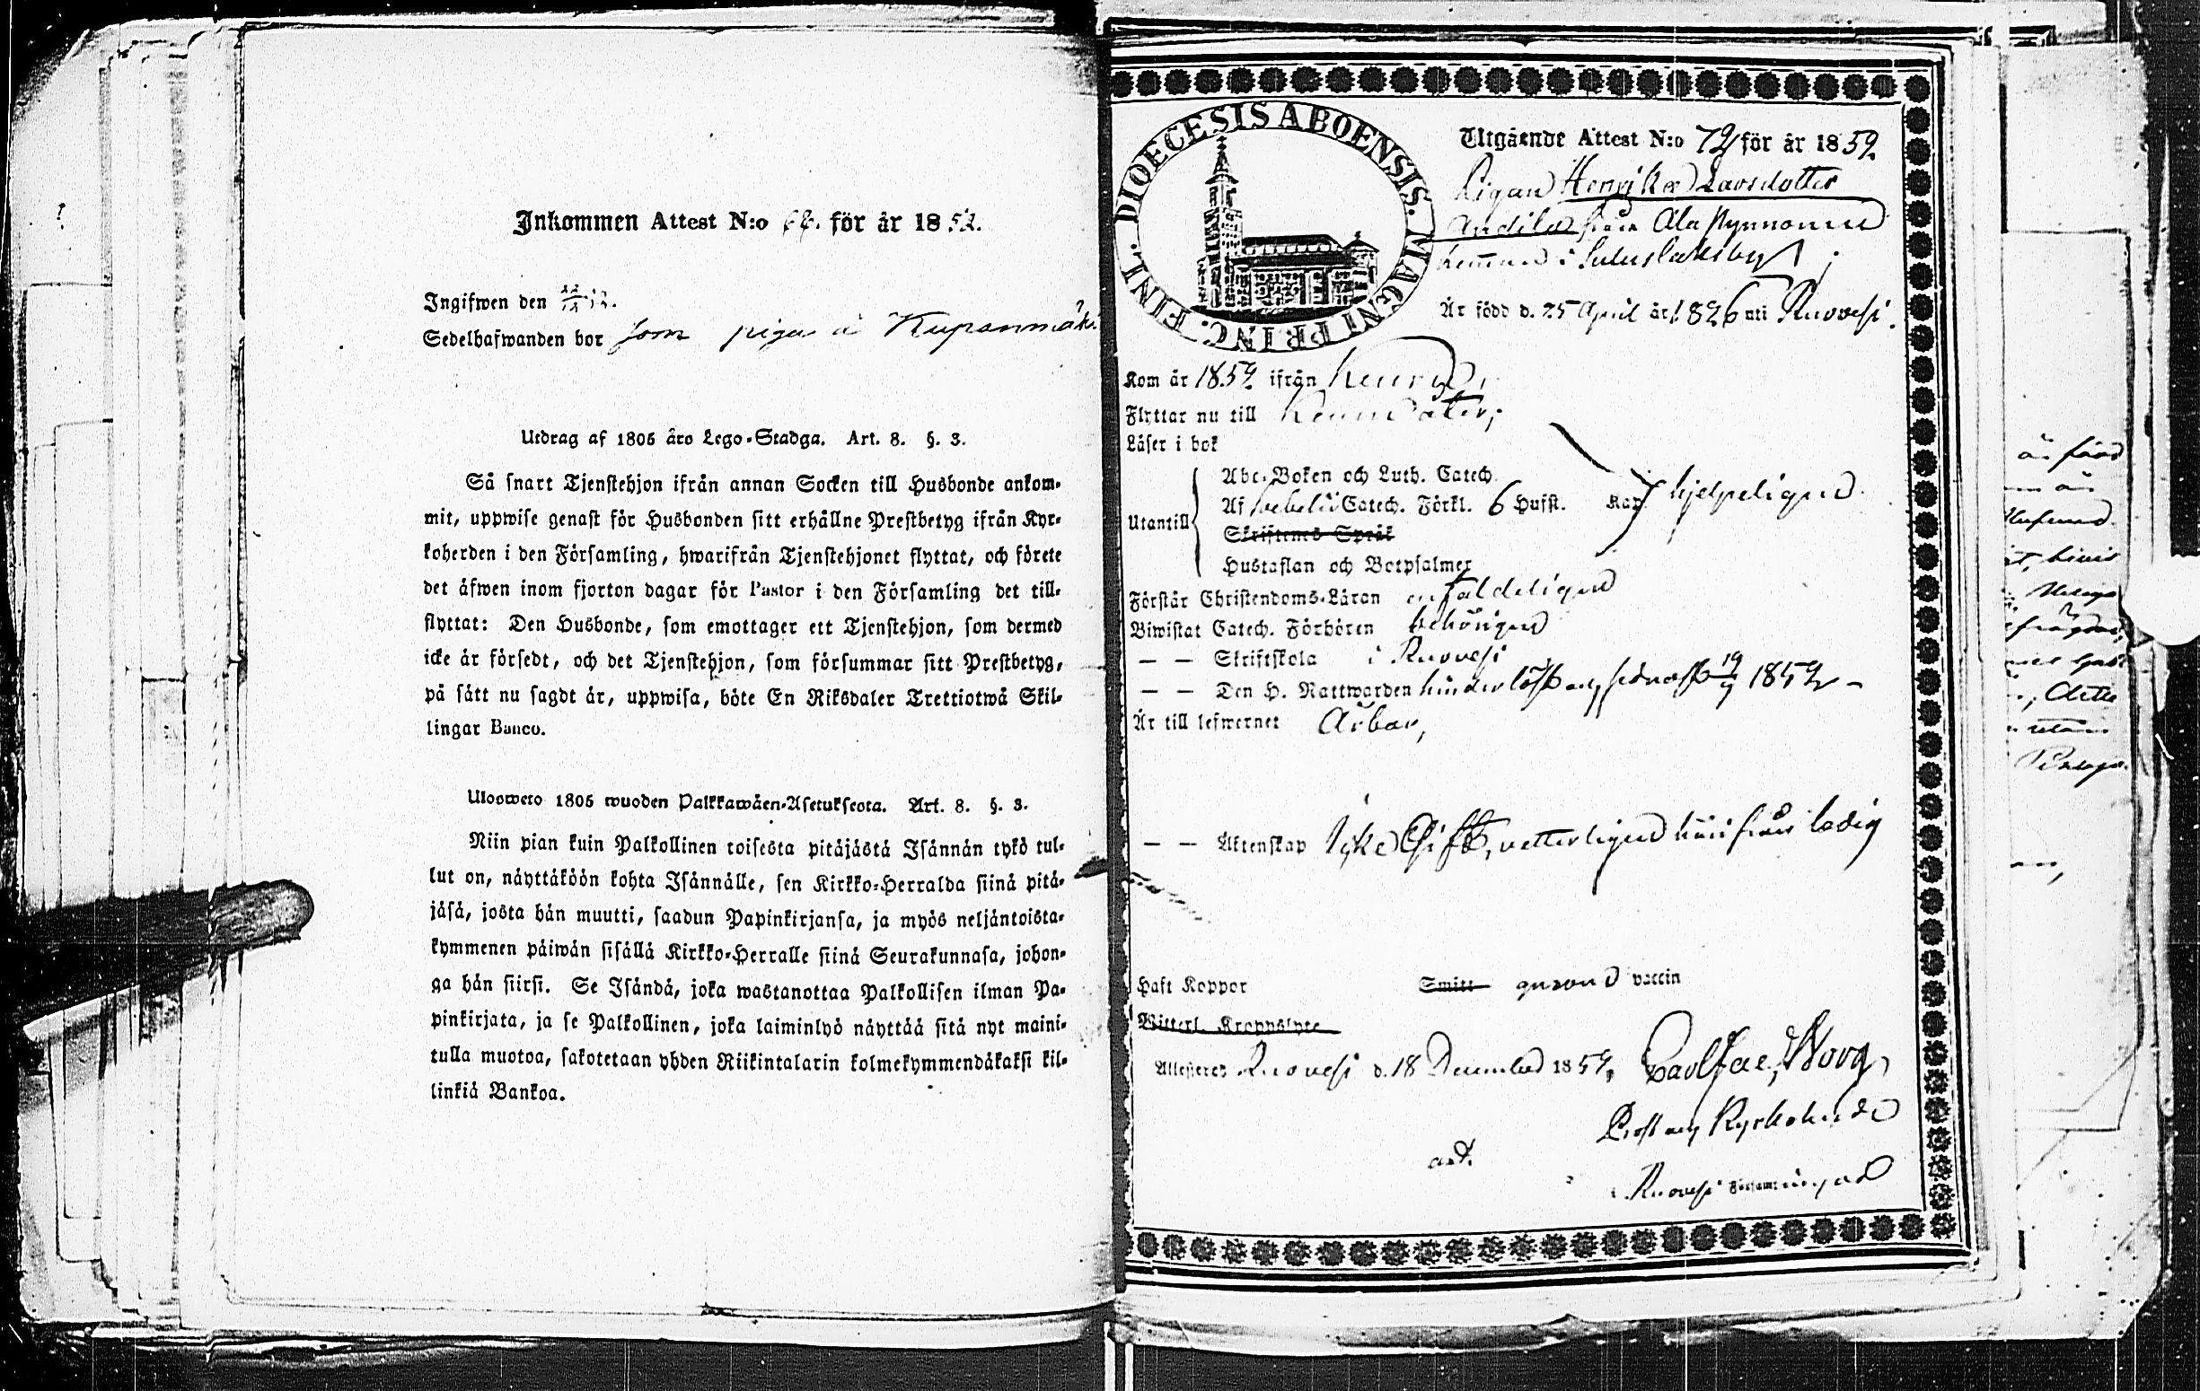 Inkommen Attest N:o för år 18 52.
Ingifwen den
Sedelhafwanden bor som piga å Kupanmäki
Utdrag af 1805 års Lego-Stadga. Art. 8. §. 3.
Så snart Tjenstehjon ifrån annan Socken till Husbonde ankom-
mit, uppwise genast för Husbonden sitt erhållne Prestbetyg ifrån Kyr-
koherden i den Församling, hwarifrån Tjenstehjonet flyttat, och förete
det äfwen inom fjorton dagar för Pastor i den Församling det till-
flyttat: Den Husbonde, som emottager ett Tjenstehjon, som dermed
icke är försedt, och det Tjenstehjon, som försummar sitt Prestbetyg,
på sätt nu sagdt är, uppwisa, böte En Riksdaler Trettiotwå Skil-
lingar Banco.
Ulosweto 1805 wuoden Palkkawäen-Asetuksesta. Art. 8. §. 3.
Niin pian kuin Palkollinen toisesta pitäjästä Isännän tykö tul-
lut on, näyttäköön kohta Isännälle, sen Kirkko-Herralda siinä pitä-
jäsä, josta hän muutti, saadun Papinkirjansa, ja myös neljäntoista-
kymmenen päiwän sisällä Kirkko-Herralle siinä Seurakunnasa, johon-
ga hän siirsi. Se Isändä, joka wastanottaa Palkollisen ilman Pa-
pinkirjata, ja se Palkollinen, joka laiminlyö näyttää sitä nyt maini-
tulla muotoa, sakotetaan yhden Riikintalarin kolmekymmendäkaksi kil-
linkiä Bankoa.
DIOECESIS ABOENSIS. MAGNI PRINC. FINL.
Utgående Attest N:o 72 för år 1852.
Pigan Henrika Larsdotter
från Ala
hemman i
Är född d. 25 April år 1826 uti Ruovesi.
Kom år 1852 ifrån Keuru
Flyttar nu till Keuru åter;
Läser i bok
Utantill
Abc-Boken och Luth. Catech.
Af Catech. Förkl. 6 Hufst. Kap. hjelpeligen
Skriftenes Språk
Hustaflan och Botpsalmer
Förstår Christendoms-Läran enfaldeligen
Biwistat Catech. Förhören behörigen
— — Skriftskola i Ruovesi
— — Den H. Nattwarden hinderlöst och senast 19/9 1852 –
Är till lefwernet Ärbar,
— — Äktenskap icke Gift, vetterligen härifrån ledig
Haft Koppor Smitt genom vaccin
Witterl. Kroppslyte
Attesteres Ruovesi d. 18 December 1852, Carl Jac. Borg
Prost och Kyrkoherde
i Ruovesi Församlingen